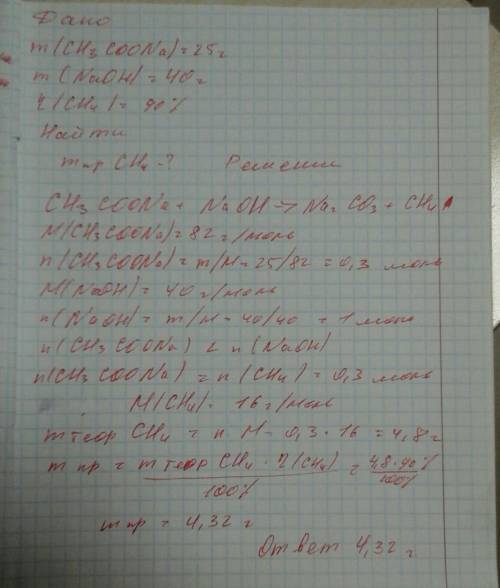 Дано
m(CH3COONa)=25г
m(NaOH)=40г
η(CH4)=90%
Найти
mпр CH4-? Решение
CH3COONa+NaOH→Na2CO3+CH4↑
M(CH3COONa)=82г/моль
n(CH3COONa)=m/M=25/82=0,3 моль
M(NaOH)=40г/моль
n(NaOH)=m/M=40/40=1моль
n(CH3COONa)<n(NaOH)
n(CH3COONa)=n(CH4)=0,3 моль
M(CH4)=16г/моль
mтеор CH4=n·M=0,3·16=4,8г
mпр=mтеор CH4·η(CH4)/100%=4,8·90%/100%
mпр=4,32г
Ответ 4,32г